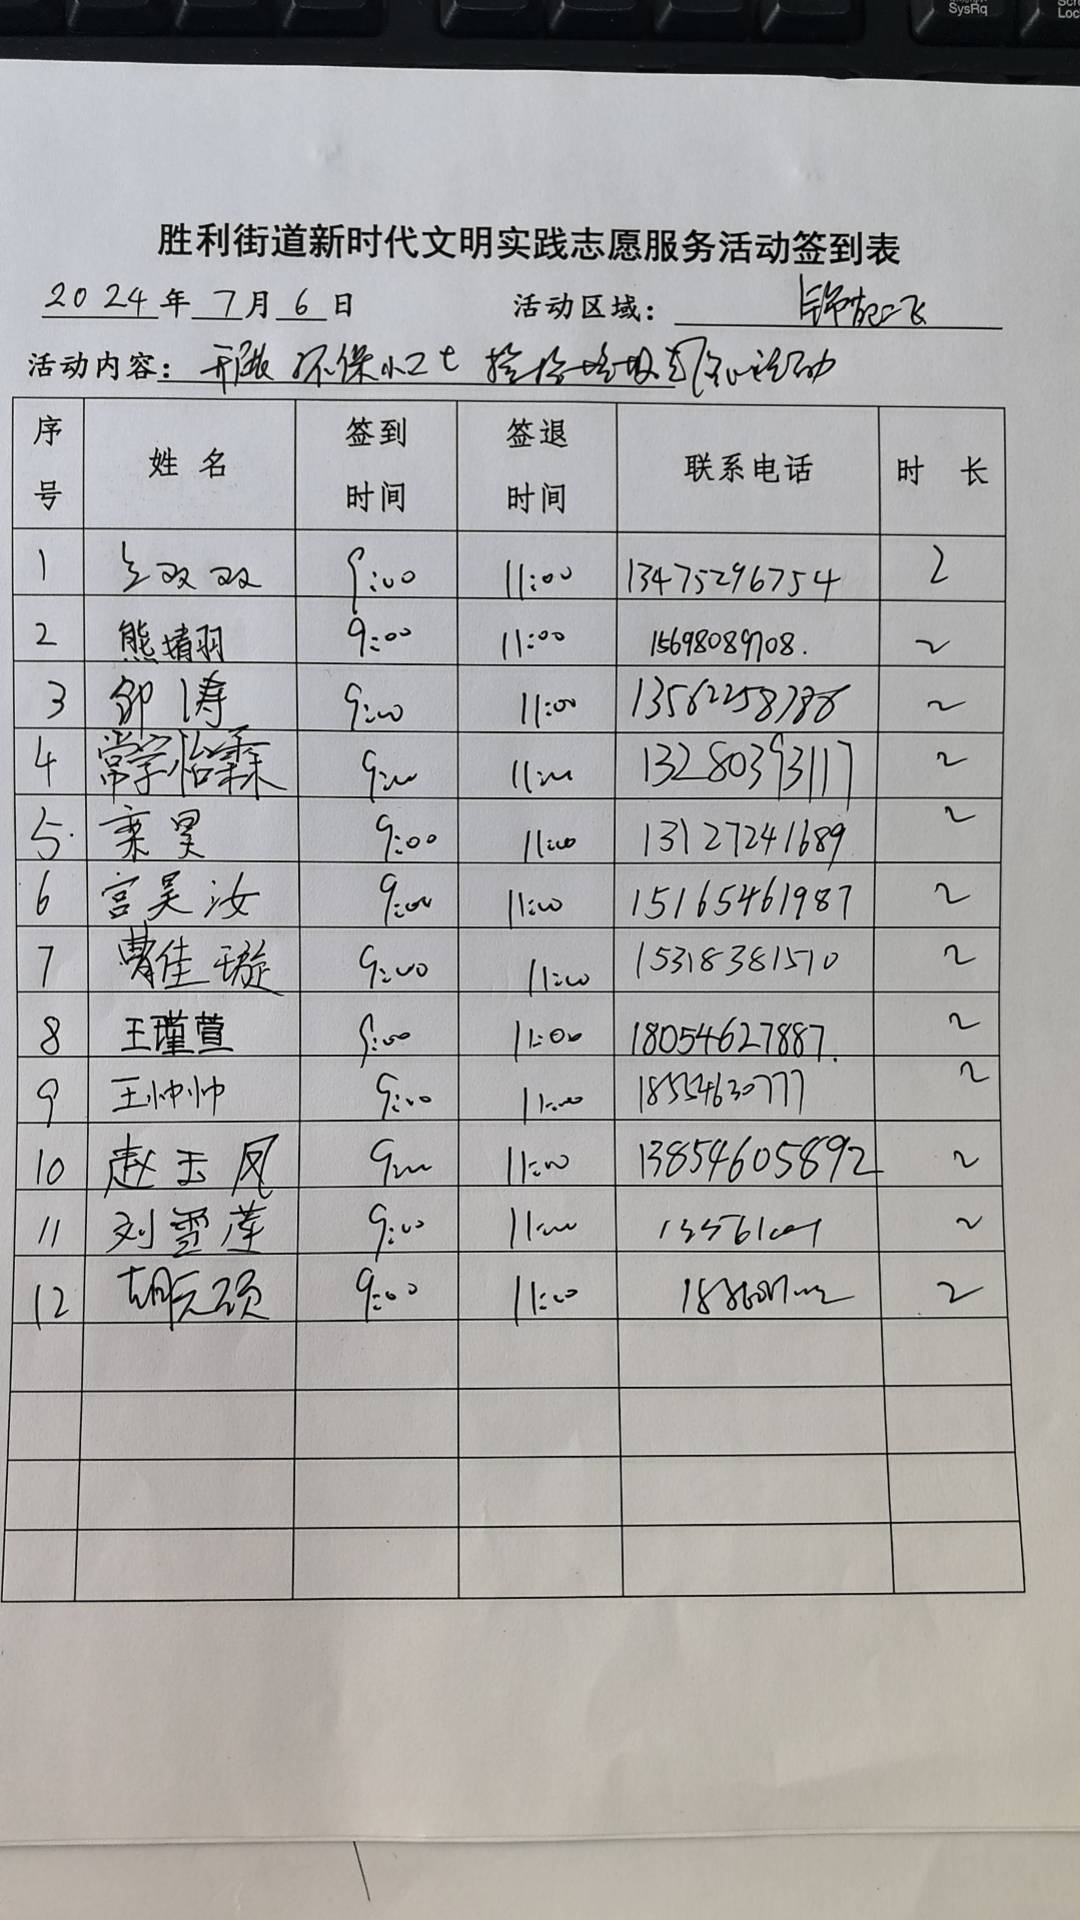 SysRq
胜利街道新时代文明实践志愿服务活动签到表
2024年7月6日 活动区域：
活动内容：开展环保小卫士捡拾垃圾活动
序号 姓名 签到时间 签退时间 联系电话 时长
1 双双 9:00 11:00 13475296754 2
2 熊堉羽 9:00 11:00 15698089708. 2
3 邹涛 9:00 11:00 2
4 常宇怡霖 9:00 11:00 13280393117 2
5. 栾昊 9:00 11:00 13127241689 2
6 宫昊汝 9:00 11:00 15165461987 2
7 曹佳璇 9:00 11:00 15318381570 2
8 王瑾萱 9:00 11:00 18054627887. 2
9 王帅帅 9:00 11:00 18554630777 2
10 赵玉凤 9:00 11:00 13854605892 2
11 刘雪莲 9:00 11:00 2
12 胡元硕 9:00 11:00 2